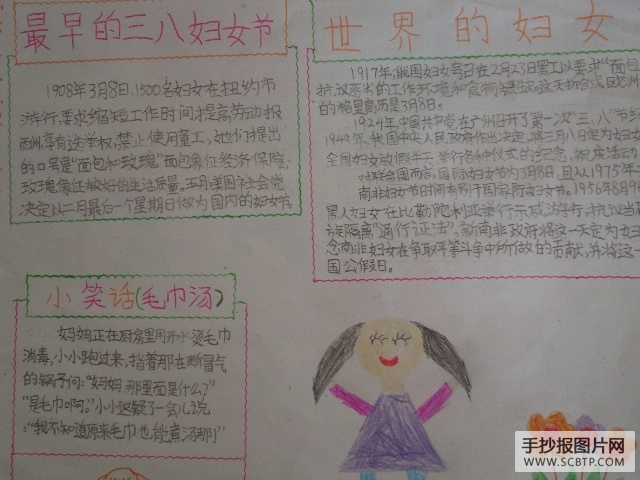 最早的三八妇女节
1908年3月8日,1500名妇女在扭约市
游行,要求缩短工作时间提高劳动报
酬,享有选举权,禁止使用童工,她们提出
的口号是“面包和玫瑰”面包象征经济保障,
玫瑰象征较好的生活质量,五月,美国社会党
决定以二月最后一个星期日做为国内的妇女节。
世界的妇女
1917年,俄国妇女号召在2月23日罢工以要求“面包
抗议恶劣的工作环境和食物
的格里高历是3月8日。
1924年,中国共产党在广州召开了第一次“三、八”节
1949年,我国中央人民政府作出决定,将三月八日定为妇女
全国妇女放假半天,举行各种仪式的纪念、祝庆活动
对联合国而言,国际妇女节为3月8日,且从1975年
南非妇女节时间有别于国际妇女节。1956年8月9
黑人妇女在比勒陀利亚举行示威游行,抗议当
族隔离“通行证法”,新南非政府将这一天定为妇
念南非妇女在争取平等斗争中所做的贡献,并将这一
国公假日。
小笑话(毛巾汤)
妈妈正在厨房里用开水煲毛巾
消毒,小小跑过来,指着那在断冒气
的锅子问:“妈妈,那里面是什么?”
“是毛巾啊。”小小迟疑了一会儿说
:“我不知道原来毛巾也能煮汤那!”
手抄报图片网
WWW.SCBTP.COM